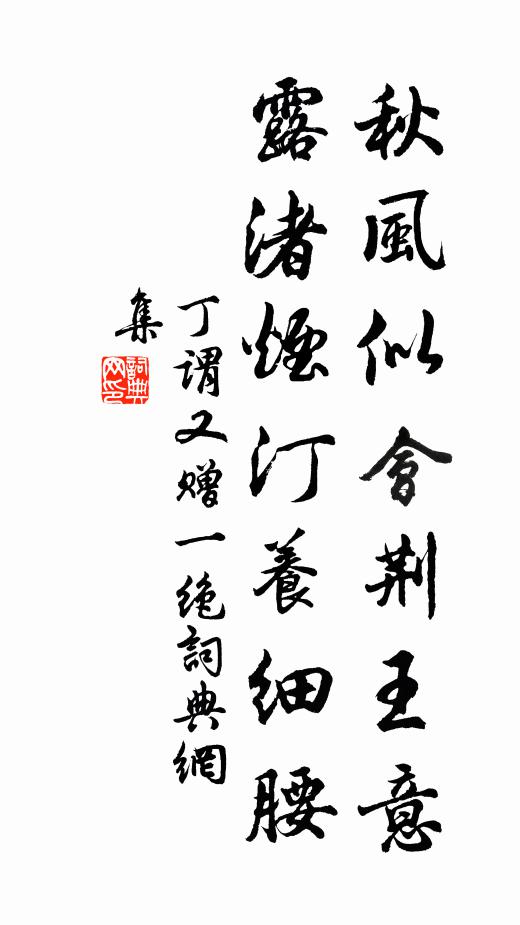 秋風似會荆王意
露渚煙汀養細腰
丁謂又贈一絶詞典網
集
詞典網印